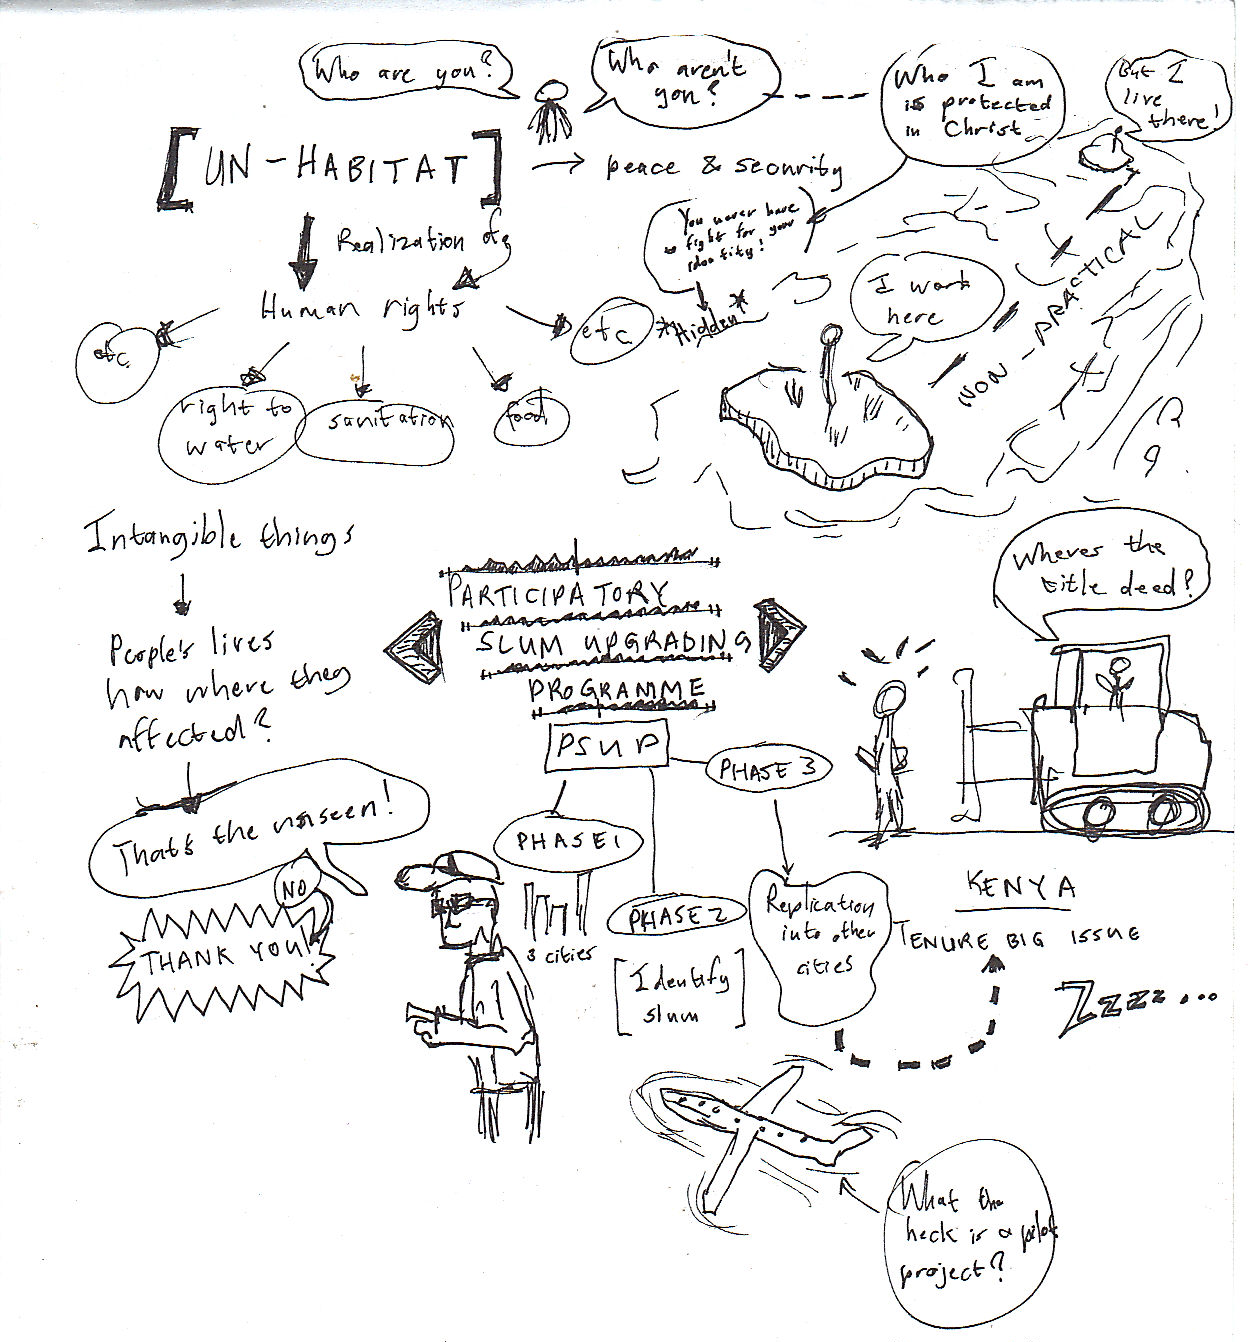 Who are you?
Who aren't
you?
Who I am
is protected
in Christ
But I
live
there!
[UN-HABITAT]
peace & security
You never have
to fight for your
identity!
*Hidden*
Realization of
Human rights
etc
etc
right to
water
sanitation
food
I work
here
NON-PRACTICAL
Intangible things
People's lives
how where they
affected?
That's the unseen!
NO
THANK YOU!
PARTICIPATORY
SLUM UPGRADING
PROGRAMME
PSUP
PHASE 1
3 cities
PHASE 2
[Identify
slum]
PHASE 3
Replication
into other
cities
Wheres the
title deed?
KENYA
TENURE BIG ISSUE
Zzzzz...
What the
heck is a pilot
project?